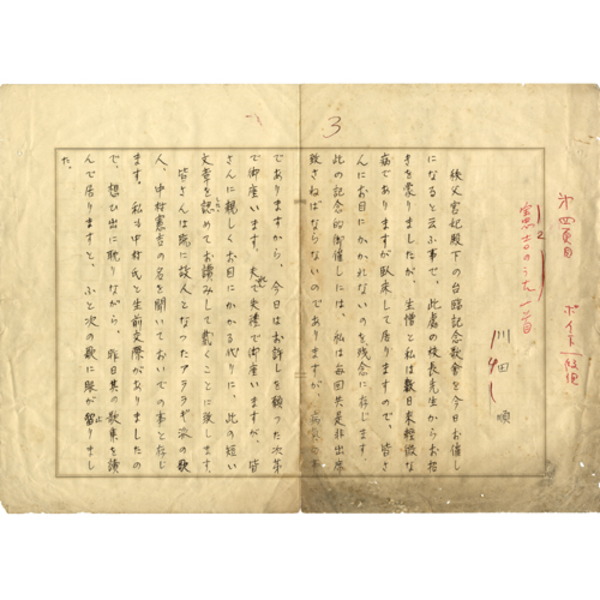 3
第四頁目 ポイント一段組
憲吉のうた一首
川田 順
秩父宮妃殿下の台臨記念歌會を今日お催し
になると云ふ事で、此處の校長先生からお招
きを蒙りましたが、生憎と私は數日来軽微な
病でありますが臥床して居りますので、皆さ
んにお目にかかれないのを残念に存じます。
此の記念的御催しには、私は毎回共是非出席
致さねばならないのでありますが、病気の
でありますから、今日はお許しを願つた次第
で御座います。失礼で御座いますが、皆
さんに親しくお目にかかる代りに、此の短い
文章を認めてお讀みして戴くことに致します。
皆さんは旣に故人となつたアララギ派の歌
人、中村憲吉の名を聞いておいでの事と存じ
ます。私も中村氏と生前交際がありましたの
で、想ひ出に耽りながら、昨日其の歌集を讀
んで居りますと、ふと次の歌に眼が留りまし
た。